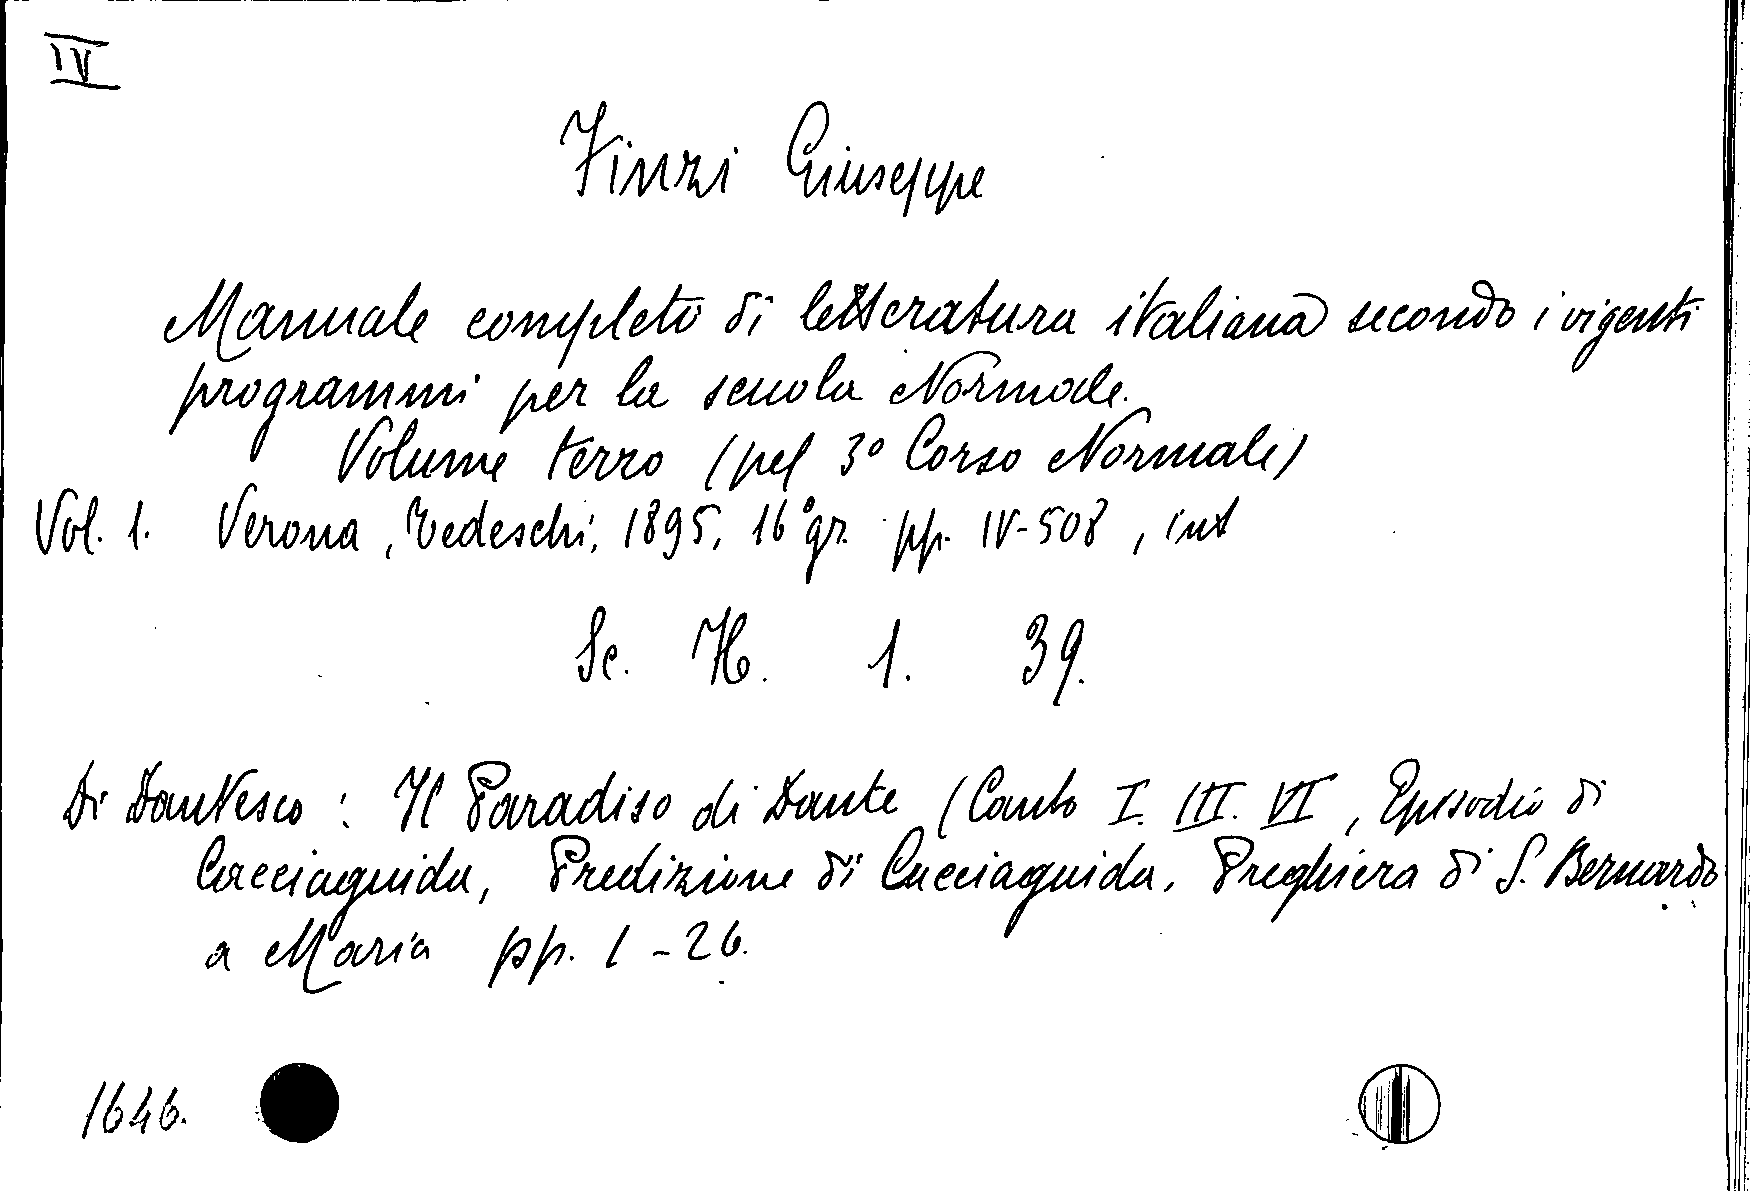 IV
Finzi Giuseppe
Manuale completo di letteratura italiana secondo i vigenti
programmi per la scuola Normale.
Volume terzo (pel 3º Corso Normale)
Vol. 1. Verona, Tedeschi, 1895, 16º gr. pp. IV-508, int
Sc. H. 1. 39.
Di Dantesco: Il Paradiso di Dante (Canto I. III. VI, Episodio di
Cacciaguida, Predizione di Cacciaguida. Preghiera di S. Bernardo
a Maria pp. 1-26.
1646.